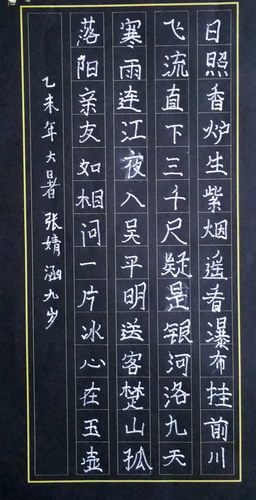 日照香炉生紫烟遥看瀑布挂前川
飞流直下三千尺疑是银河洛九天
寒雨连江夜入吴平明送客楚山孤
落阳亲友如相问一片冰心在玉壶
乙未年大暑 张婧涵九岁